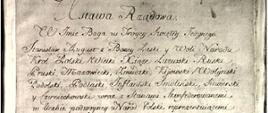 Ustawa Rządowa.
W Imie Boga w Troycy Swiętey Jedynego
Stanisław August z Bożey Łaski y Woli Narodu
Krol Polski, Wielki Xiąże Litewski, Ruski
Pruski, Mazowiecki, Żmudzki, Kijowski, Wołyński
Podolski, Podlaski, Inflantski, Smoleński, Siewierski
y Czerniechowski, wraz z Stanami Skonfederowanymi
w liczbie podwóyney Naród Polski reprezentuiącemi